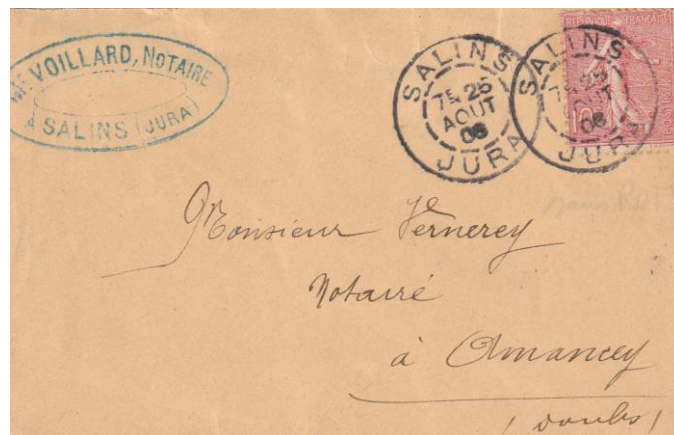 Mᵉ VOILLARD, NOTAIRE
A SALINS (JURA)
SALINS
7E 25
AOUT
06
JURA
SALINS
7E 25
AOUT
06
JURA
REPUBLIQUE FRANÇAISE
Monsieur Vernerey
Notaire
à Amancey
(Doubs)